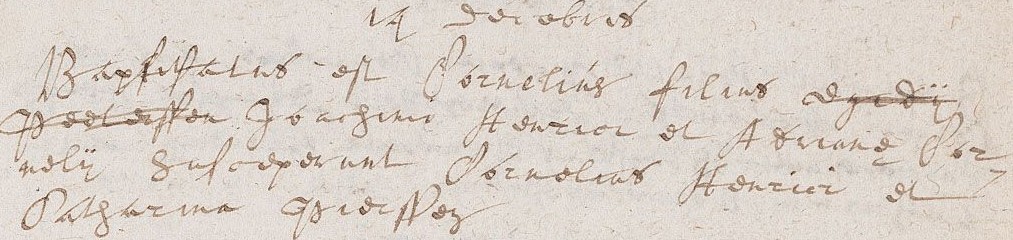 14 decebris
Baptisatus est Cornelius filius Egidij
Peeterssen Joachimi Henrici et Adrianę Cor
nelij susceperunt Cornelius Henrici et
Catharina Pierssen